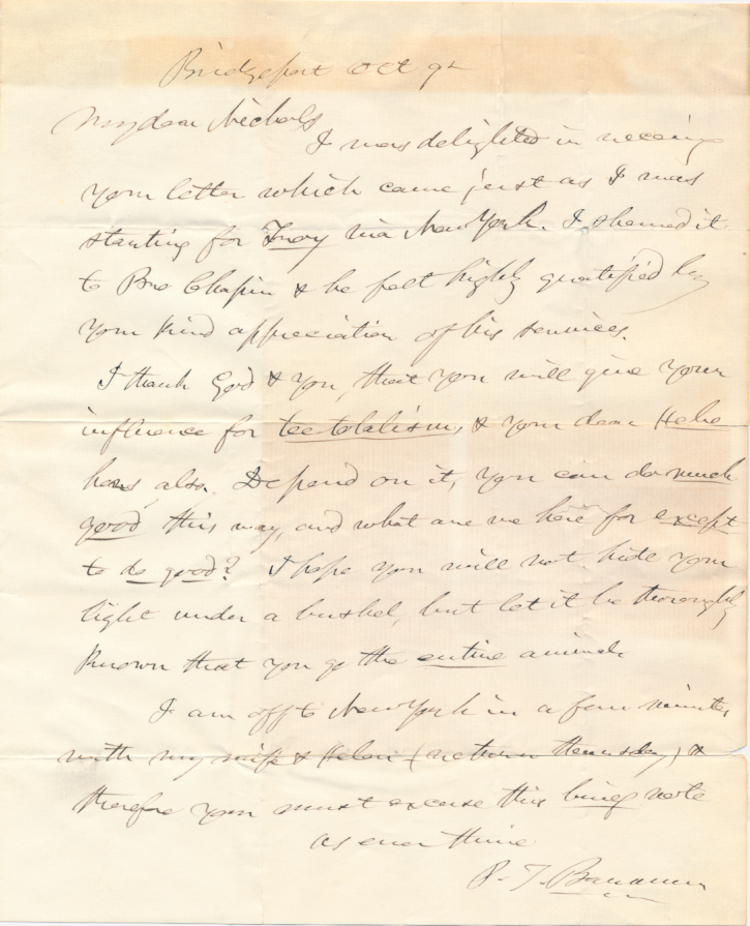 Bridgeport Oct 9th
My dear Nichols
I was delighted in receiving
your letter which came just as I was
starting for Troy via New York. I showed it
to Bro Chapin & he felt highly gratified by
your kind appreciation of his services.
I thank God & you, that you will give your
influence for teetotalism, & your dear Hebe
hers also. Depend on it, you can do much
good this way, and what are we here for except
to do good? I hope you will not hide your
light under a bushel, but let it be thoroughly
known that you go the entire animal.
I am off to New York in a few minutes
with my wife & Helen (return thursday) &
therefore you must excuse this brief note
as ever thine
P. T. Barnum